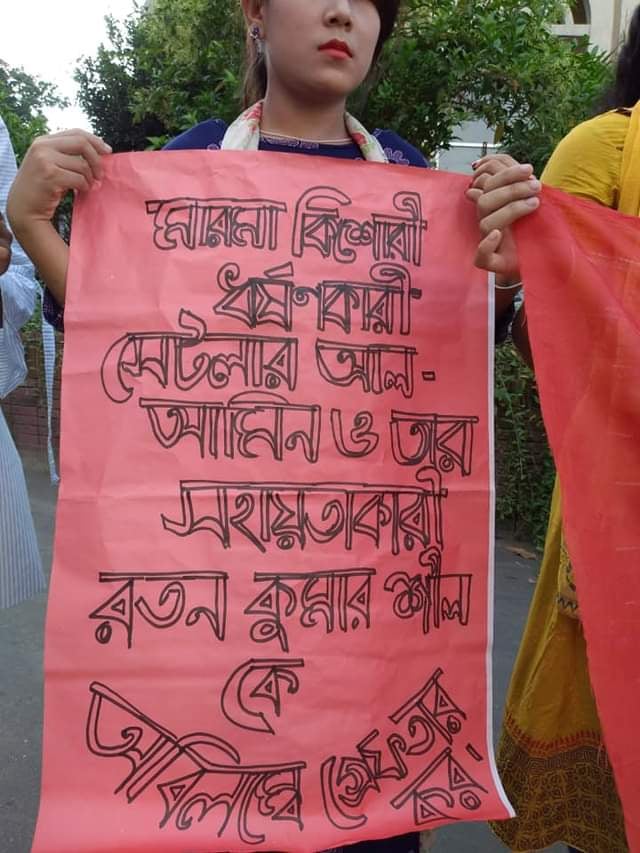 মারমা কিশোরী
ধর্ষণকারী
সেটলার আল-
আমিন ও তার
সহায়তাকারী
রতন কুমার শীল
কে
অবিলম্বে গ্রেফতার
কর